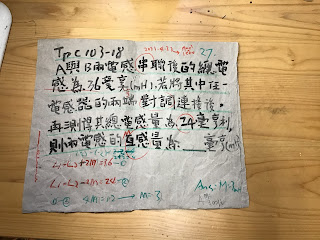 Tpc 103-18
27.
A與B兩電感串聯後的總電
感為36毫亨(mH),若將其中任一
電感器的兩端對調連接後,
再測得其總電感量為24毫亨利,
則兩電感的互感量為____毫亨(mH)
L1+L2+2M=36-①
L1+L2-2M=24-②
①-② 4M=12 → M=3